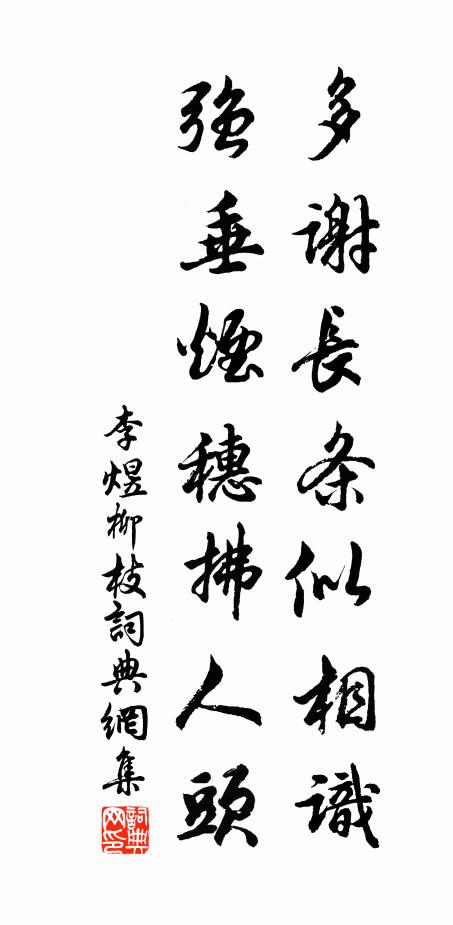 多謝長条似相識
強垂煙穗拂人頭
李煜柳枝詞典網集
詞典网印